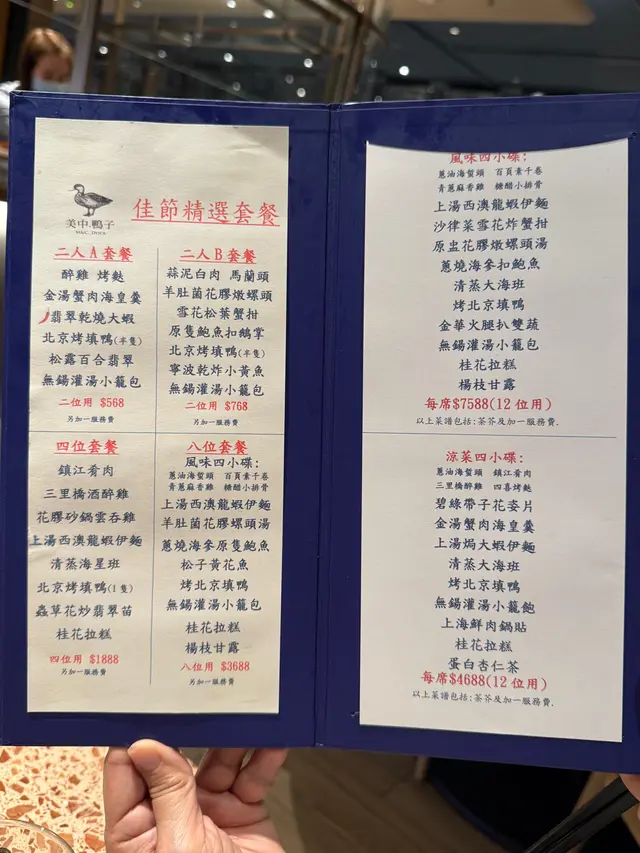 美中.鴨子
佳節精選套餐
二人A套餐
醉雞 烤麩
金湯蟹肉海皇羹
翡翠乾燒大蝦
北京烤填鴨(半隻)
松露百合翡翠
無錫灌湯小籠包
二位用 $568
另加一服務費
二人B套餐
蒜泥白肉 馬蘭頭
羊肚菌花膠燉螺頭
雪花松葉蟹柑
原隻鮑魚扣鵝掌
北京烤填鴨(半隻)
寧波乾炸小黃魚
無錫灌湯小籠包
二位用 $768
另加一服務費
四位套餐
鎮江肴肉
三里橋酒醉雞
花膠砂鍋雲吞雞
上湯西澳龍蝦伊麵
清蒸海星班
北京烤填鴨(1隻)
蟲草花炒翡翠苗
桂花拉糕
四位用 $1888
另加一服務費
八位套餐
風味四小碟:
蔥油海蜇頭 百頁素千卷
青蔥麻香雞 糖醋小排骨
上湯西澳龍蝦伊麵
羊肚菌花膠螺頭湯
蔥燒海參原隻鮑魚
松子黃花魚
烤北京填鴨
無錫灌湯小籠包
桂花拉糕
楊枝甘露
八位用 $3688
另加一服務費
風味四小碟:
蔥油海蜇頭 百頁素千卷
青蔥麻香雞 糖醋小排骨
上湯西澳龍蝦伊麵
沙律菜雪花炸蟹拑
原盅花膠燉螺頭湯
蔥燒海參扣鮑魚
清蒸大海班
烤北京填鴨
金華火腿扒雙蔬
無錫灌湯小籠包
桂花拉糕
楊枝甘露
每席$7588(12位用)
以上菜譜包括:茶芥及加一服務費.
涼菜四小碟:
蔥油海蜇頭 鎮江肴肉
三里橋醉雞 四喜烤麩
碧綠帶子花姿片
金湯蟹肉海皇羹
上湯焗大蝦伊麵
清蒸大海班
烤北京填鴨
無錫灌湯小籠飽
上海鮮肉鍋貼
桂花拉糕
蛋白杏仁茶
每席$4688(12位用)
以上菜譜包括:茶芥及加一服務費.